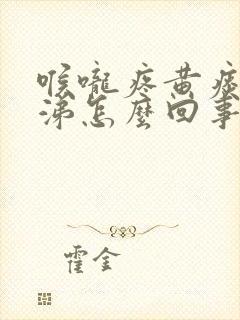 喉嚨疼黄痰
涕怎麼回事
霍金